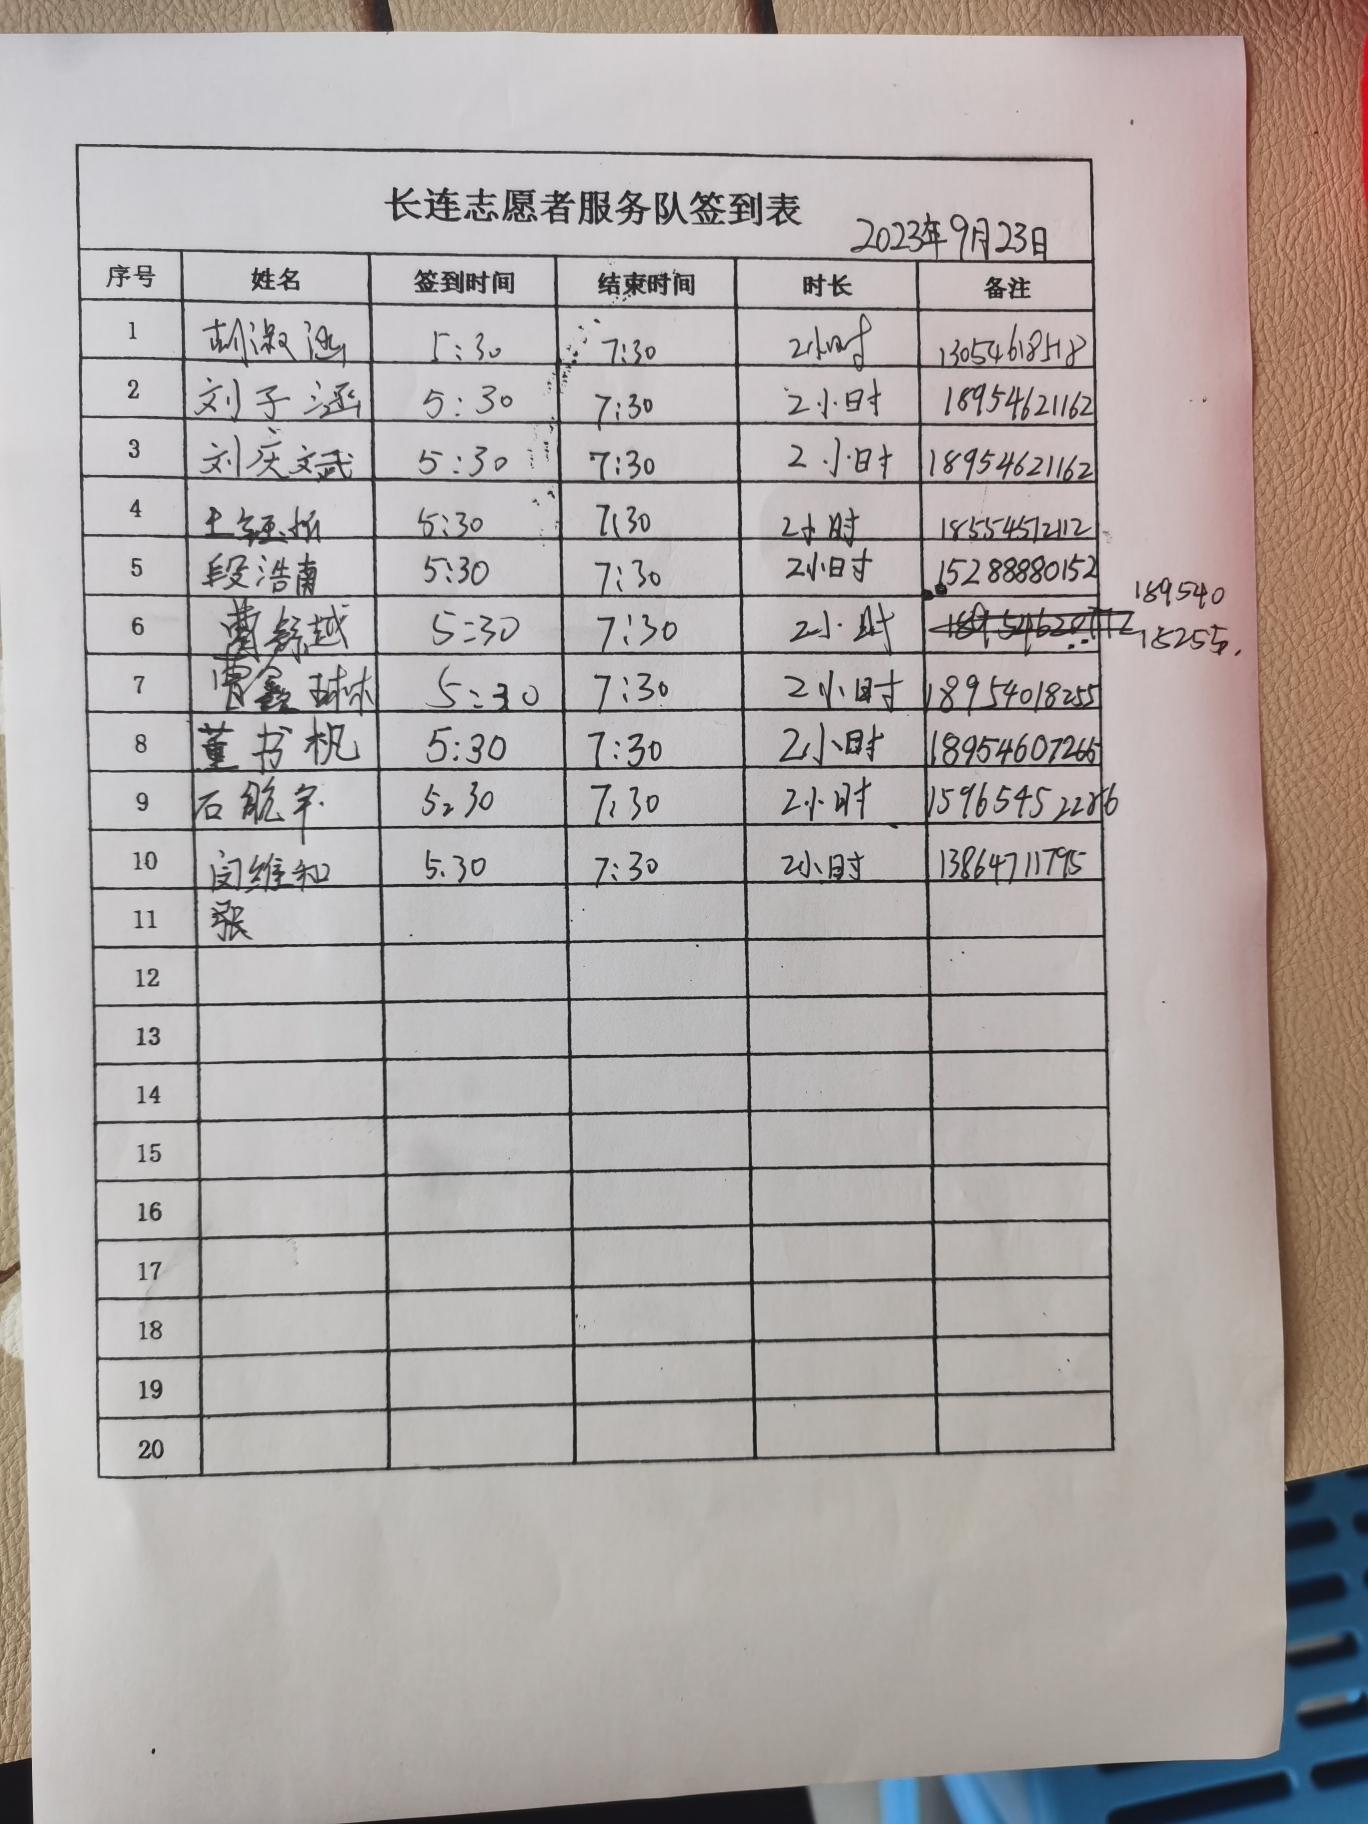 长连志愿者服务队签到表
2023年9月23日
序号 姓名 签到时间 结束时间 时长 备注
1 胡淑涵 5:30 7:30 2小时 13054618518
2 刘子涵 5:30 7:30 2小时 18954621162
3 刘庆文武 5:30 7:30 2小时 18954621162
4 5:30 7:30 2小时 18554512112
5 段浩南 5:30 7:30 2小时 15288880152
6 曹 越 5:30 7:30 2小时 189540
18255.
7 曹鑫 5:30 7:30 2小时 18954018255
8 董书帆 5:30 7:30 2小时 18954607266
9 石航宇 5:30 7:30 2小时 15965452286
10 闵维和 5:30 7:30 2小时 13864711795
11 张
12
13
14
15
16
17
18
19
20